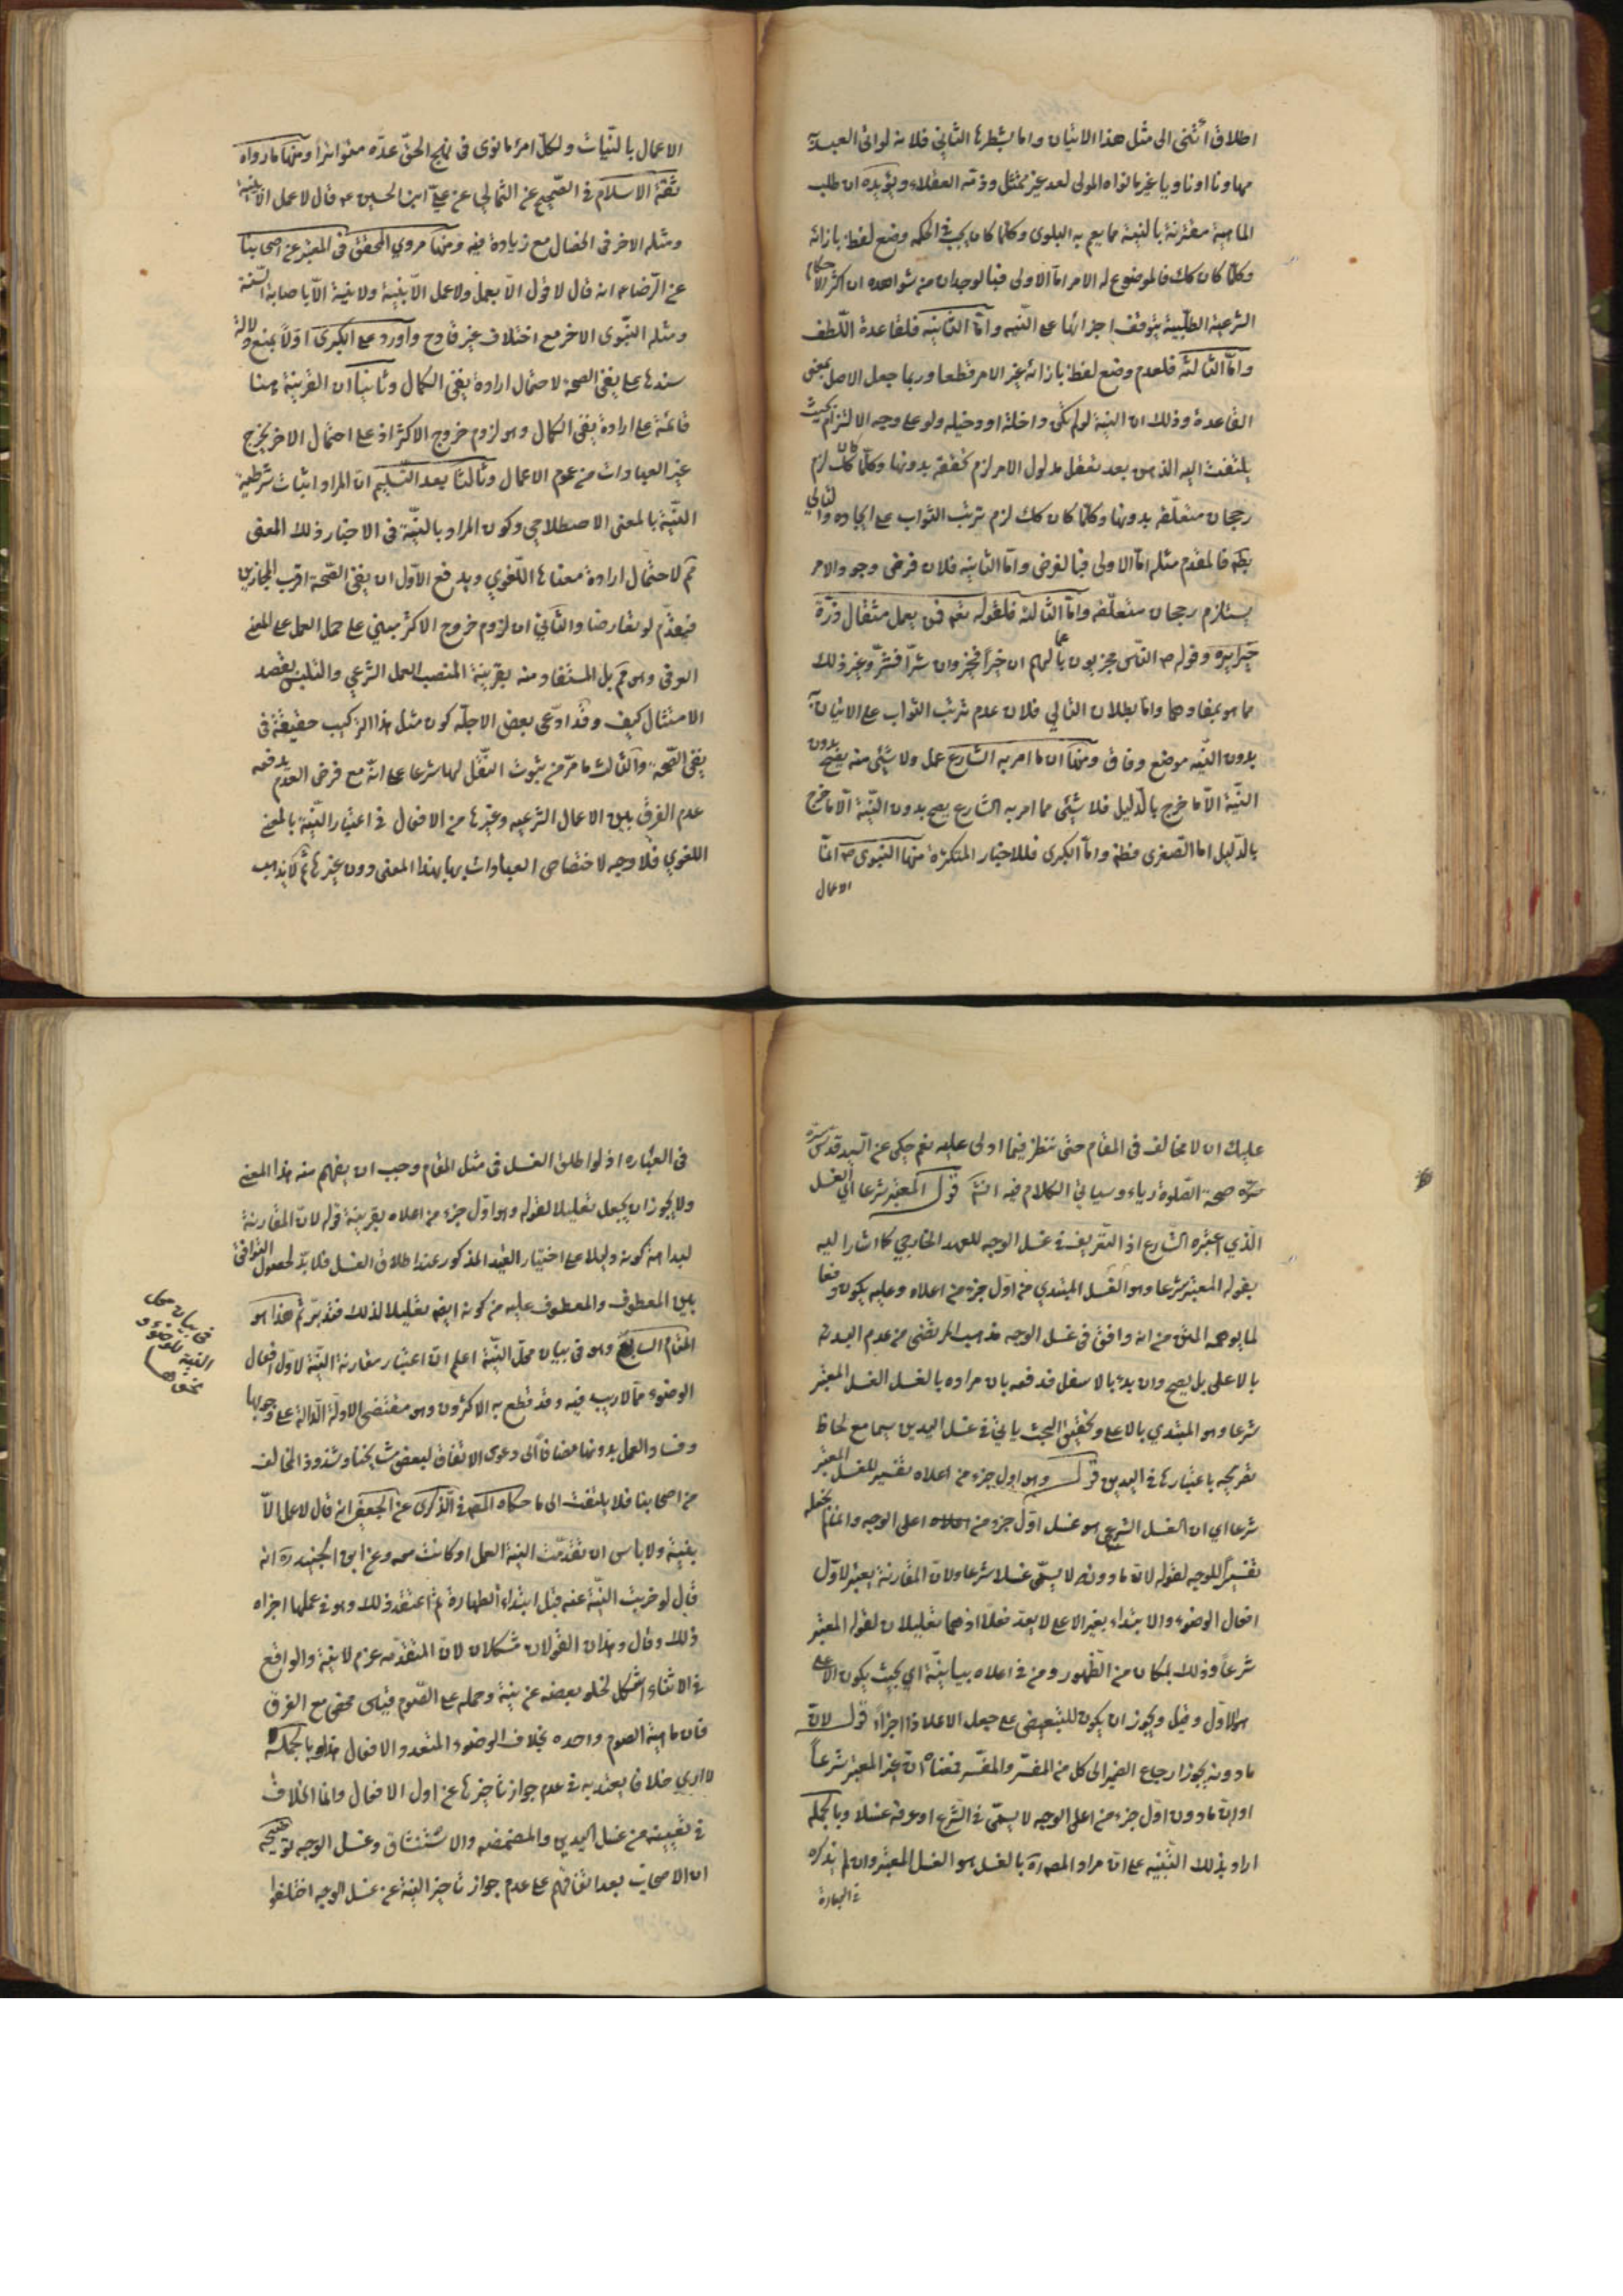 اطلاق أنثى الى مثل هذا الاتيان واما بشطرها الثاني فلانه لو اتى العبد
مهاونا او ناويا غير ما نواه المولى لعد غير ممتثل وذمه العقلاء ويؤيده ان طلب
الماهية مقترنة بالنية مما يعم به البلوى وكلما كان يجب في الحكمة وضع لفظ بازائه
وكلما كان كك فالموضوع له الامر اما الاولى فبالوجدان من شواهده ان اكثر الاحكام
الشرعية الطلبية يتوقف اجزائها على النيه واما الثانيه فلقاعدة اللطف
واما الثالثة فلعدم وضع لفظ بازائه غير الامر قطعا وربما جعل الاصل بمعنى
القاعدة وذلك ان النية لو لم تكن داخلة او دخيله ولو على وجه الالتزام بحيث
يلتفت اليه الذهن بعد تعقل مدلول الامر لزم تحققه بدونها وكلما كان كك لزم
رجحان متعلقه بدونها وكلما كان كك لزم ترتب الثواب على ايجاده والتالي
بط فالمقدم مثله اما الاولى فبالفرض واما الثانيه فلان فرض وجود الامر
يستلزم رجحان متعلقه واما الثالثة فلقوله تعم فمن يعمل مثقال ذرة
خيرا يره وقوله ص الناس مجزيون باعمالهم ان خيرا فخير وان شرا فشر وغير ذلك
مما هو بمفادهما واما بطلان التالي فلان عدم ترتب الثواب على الاتيان به
بدون النيه موضع وفاق ومنها ان ما امر به الشارع عمل ولا شئ منه يصح بدون
النية الا ما خرج بالدليل فلا شئ مما امر به الشارع يصح بدون النية الا ما خرج
بالدليل اما الصغرى فظة واما الكبرى فللاخبار المتكثرة منها النبوى ص انما
الاعمال
الاعمال بالنيات ولكل امرء ما نوى فى نهج الحق عده متواترا ومنها ما رواه
ثقة الاسلام فى الصحيح عن الثمالي عن علي ابن الحسين ع قال لا عمل الا بنية
ومثله الاخر فى الخصال مع زيادة فيه ومنها مروي المحقق فى المعتبر عن اصحابنا
عن الرضا ع انه قال لا قول الا بعمل ولا عمل الا بنية ولا نية الا باصابة السنة
ومثله النبوى الاخر مع اختلاف غير قادح واورد على الكبرى اولا بمنع دلالة
سندها على نفى الصحة لاحتمال ارادة نفى الكمال وثانيا ان القرينة هنا
قائمة على ارادة نفى الكمال وهو لزوم خروج الاكثر اذ على احتمال الاخر يخرج
غير العبادات من عموم الاعمال وثالثا بعد التسليم ان المراد اثبات شرطية
النية بالمعنى الاصطلاحي وكون المراد بالنية فى الاخبار ذلك المعنى
مم لاحتمال ارادة معناها اللغوي ويدفع الاول ان نفى الصحة اقرب المجازين
فيقدم لو تعارضا والثاني ان لزوم خروج الاكثر مبني على حمل العمل على المعنى
العرفى وهو مم بل المستفاد منه بقرينة المنصب العمل الشرعي والتلبس بقصد
الامتثال كيف وقد ادعى بعض الاجلة كون مثل هذا التركيب حقيقة فى
نفى الصحة والثالث ما مر من ثبوت النقل لها شرعا على انه مع فرض العدم يدفعه
عدم الفرق بين الاعمال الشرعيه وغيرها من الافعال فى اعتبار النية بالمعنى
اللغوي فلا وجه لاختصاص العبادات بها بهذا المعنى دون غيرها ثم لا يذهب
عليك ان لا مخالف فى المقام حتى تنظر فيما اولى عليه نعم حكى عن السيد قدس سره
صحة الصلوة رياء وسيأتي الكلام فيه انشم قوله المعتبر شرعا اي الغسل
الذي اعتبره الشارع اذ التعريف فى غسل الوجه للعهد الخارجي كما اشار اليه
بقوله المعتبر شرعا وهو الغسل المبتدي من اول جزء من اعلاه وعليه يكون دفعا
لما يوهمه المتن من انه وافق فى غسل الوجه مذهب المرتضى من عدم البدئة
بالاعلى بل يصح وان بدء بالاسفل فدفعه بان مراده بالغسل الغسل المعتبر
شرعا وهو المبتدي بالاعلى وتحقيق البحث يأتي فى غسل اليدين سيما مع لحاظ
تصريحه باعتبارها فى اليدين قوله وهو اول جزء من اعلاه تفسير للغسل المعتبر
شرعا اي ان الغسل الشرعى هو غسل اول جزء من اعلاه اعلى الوجه وانما لم نجعله
تفسيرا للوجه لقوله لان ما دونه لا يسمى غسلا شرعا ولان المقارنة يعتبر لاول
افعال الوضوء والابتداء بغير الاعلى لا يعد فعلا اذ هما تعليلان لقوله المعتبر
شرعا وذلك بمكان من الظهور ومن فى اعلاه بيانية اي بحيث يكون الاعلى
هو الاول وقيل ويجوز ان يكون للتبعيض على جعل الاعلا ذا اجزاء قوله لان
ما دونه يجوز ارجاع الضمير الى كل من المفسر والمفسر فمعناه ان غير المعتبر شرعا
او ان ما دون اول جزء من اعلى الوجه لا يسمى فى الشرع او عرفه غسلا وبالجملة
اراد بذلك التنبيه على ان مراد المصه ره بالغسل هو الغسل المعتبر وان لم يذكره
فى العبارة
فى العبارة اذ لو اطلق الغسل فى مثل المقام وجب ان يفهم منه هذا المعنى
ولا يجوز ان يجعل تعليلا لقوله وهو اول جزء من اعلاه بقرينة قوله لان المقارنة
لبداهة كونه دليلا على اختيار القيد المذكور عند اطلاق الغسل فلا بد لحصول التوافق
بين المعطوف والمعطوف عليه من كونه ايضه تعليلا لذلك فتدبر ثم هذا هو
المقام السابع وهو فى بيان محل النية اعلم ان اعتبار مقارنة النية لاول افعال
الوضوء مما لا ريب فيه وقد قطع به الاكثرون وهو مقتضى الادلة الدالة على وجوبها
وفساد العمل بدونها مضافا الى دعوى الاتفاق لبعض مشايخنا وشذوذ المخالف
من اصحابنا فلا يلتفت الى ما حكاه المصه فى الذكرى عن الجعفى انه قال لا عمل الا
بنية ولا باس ان تقدمت النية العمل او كانت معه وعن ابن الجنيد ره انه
قال لو عزبت النية عنه قبل ابتداء الطهارة ثم اعتقد ذلك وهو فى عملها اجزاه
ذلك وقال وهذان القولان مشكلان لان المتقدمه عزم لا نية والواقع
فى الاثناء اشكل لخلو بعضه عن نية وحمله على الصوم قياس محض مع الفرق
فان ماهية الصوم واحده بخلاف الوضوء المتعدد الافعال هذا وبالجملة
لا ادري خلافا يعتد به فى عدم جواز تأخيرها عن اول الافعال وانما الخلاف
فى تعيينه من غسل اليدين والمضمضه والاستنشاق وغسل الوجه توضيحه
ان الاصحاب بعد اتفاقهم على عدم جواز تأخير النية عن غسل الوجه اختلفوا
فى بيان محل
النية